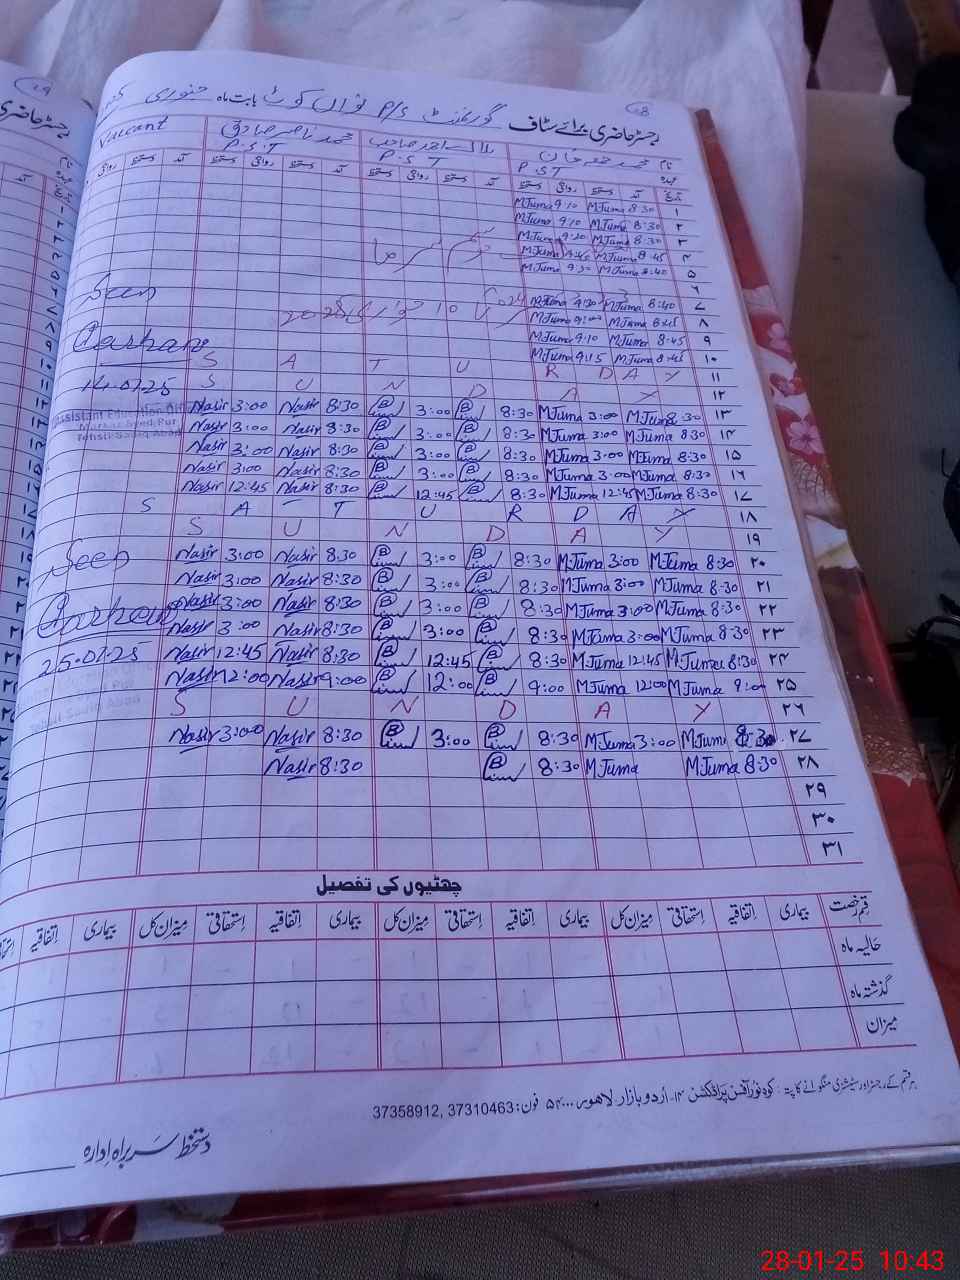 رجسٹر حاضری برائے سٹاف گورنمنٹ P/S نواں کوٹ بابت ماہ جنوری
نام محمد جمعہ خان محمد ناصر صادق Vaccant
عہدہ P.S.T P.S.T P.S.T
تاریخ آمد دستخط روانگی دستخط آمد دستخط روانگی دستخط آمد دستخط روانگی دستخط آمد دستخط روانگی
M.Juma 9:10 M.Juma 8:30 ۱
M.Juma 9:10 M.Juma 8:30 ۲
M.Juma 9:20 M.Juma 8:30 ۳
M.Juma M.Juma 8:45 ۴
M.Juma 9:30 M.Juma 8:40 ۵
۶
Seen M.Juma 9:30 M.Juma 8:40 ۷
M.Juma 9:00 M.Juma 8:45 ۸
M.Juma 9:10 M.Juma 8:45 ۹
M.Juma 9:15 M.Juma 8:45 ۱۰
S A T U R D A Y ۱۱
14.01.25 S U N D A Y ۱۲
Assistant Education Officer
Markaz Syed Pur
Tehsil Sadiq Abad
Nasir 3:00 Nasir 8:30 3:00 8:30 M.Juma 3:00 M.Juma 8:30 ۱۳
Nasir 3:00 Nasir 8:30 3:00 8:30 M.Juma 3:00 M.Juma 8:30 ۱۴
Nasir 3:00 Nasir 8:30 3:00 8:30 M.Juma 3:00 M.Juma 8:30 ۱۵
Nasir 3:00 Nasir 8:30 3:00 8:30 M.Juma 3:00 M.Juma 8:30 ۱۶
Nasir 12:45 Nasir 8:30 12:45 8:30 M.Juma 12:45 M.Juma 8:30 ۱۷
S A T U R D A Y ۱۸
S U N D A Y ۱۹
Seen Nasir 3:00 Nasir 8:30 3:00 8:30 M.Juma 3:00 M.Juma 8:30 ۲۰
Nasir 3:00 Nasir 8:30 3:00 8:30 M.Juma 3:00 M.Juma 8:30 ۲۱
Nasir 3:00 Nasir 8:30 3:00 8:30 M.Juma 3:00 M.Juma 8:30 ۲۲
Nasir 3:00 Nasir 8:30 3:00 8:30 M.Juma 3:00 M.Juma 8:30 ۲۳
25.01.25 Nasir 12:45 Nasir 8:30 12:45 8:30 M.Juma 12:45 M.Juma 8:30 ۲۴
Nasir 12:00 Nasir 9:00 12:00 9:00 M.Juma 12:00 M.Juma 9:00 ۲۵
S U N D A Y ۲۶
Nasir 3:00 Nasir 8:30 3:00 8:30 M.Juma 3:00 M.Juma 8:30 ۲۷
Nasir 8:30 8:30 M.Juma M.Juma 8:30 ۲۸
۲۹
۳۰
۳۱
چھٹیوں کی تفصیل
قسم رخصت بیماری اتفاقیہ استحقاقی میزان کل بیماری اتفاقیہ استحقاقی میزان کل بیماری اتفاقیہ استحقاقی میزان کل بیماری اتفاقیہ
حالیہ ماہ
گذشتہ ماہ
میزان
ہر قسم کے رجسٹر اور سٹیشنری منگوانے کا پتہ: کوہ نور آفس پراڈکٹس ۱۴- اُردو بازار لاہور...۵۴ فون: 37310463, 37358912
دستخط سربراہ ادارہ
28-01-25 10:43